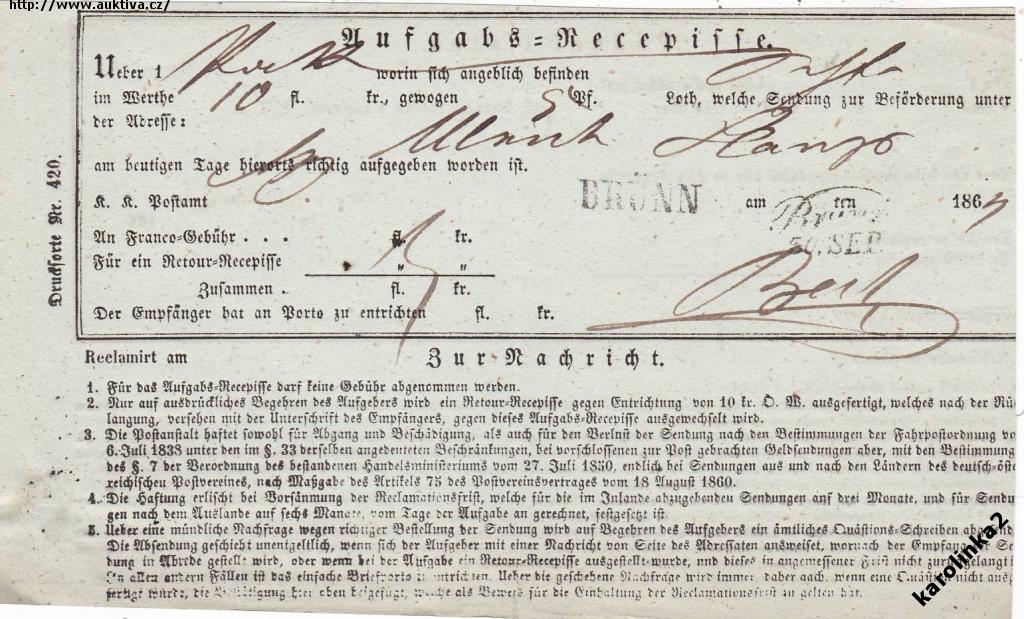 http://www.auktiva.cz/
Aufgabs=Recepisse.
Ueber 1 worin sich angeblich befinden
im Werthe 10 fl. kr., gewogen 5 Pf. Loth, welche Sendung zur Beförderung unter
der Adresse:
am heutigen Tage hierorts richtig aufgegeben worden ist.
K. K. Postamt BRÜNN am ten 186
Brünn
30. SEP.
An Franco=Gebühr . . . fl. kr.
Für ein Retour=Recepisse „ „
Zusammen . fl. kr.
Der Empfänger hat an Porto zu entrichten fl. kr.
Drucksorte Nr. 420.
Reclamirt am Zur Nachricht.
1. Für das Aufgabs=Recepisse darf keine Gebühr abgenommen werden.
2. Nur auf ausdrückliches Begehren des Aufgebers wird ein Retour=Recepisse gegen Entrichtung von 10 kr. Ö. W. ausgefertigt, welches nach der Rü
langung, versehen mit der Unterschrift des Empfängers, gegen dieses Aufgabs=Recepisse ausgewechselt wird.
3. Die Postanstalt haftet sowohl für Abgang und Beschädigung, als auch für den Verlust der Sendung nach den Bestimmungen der Fahrpostordnung vo
6. Juli 1838 unter den im §. 33 derselben angedeuteten Beschränkungen, bei vorschlossenen zur Post gebrachten Geldsendungen aber, mit den Bestimmung
des §. 7 der Verordnung des bestandenen Handelsministeriums vom 27. Juli 1850, endlich bei Sendungen aus und nach den Ländern des deutsch=öste
reichischen Postvereines, nach Maßgabe des Artikels 75 des Postvereinsvertrages vom 18 August 1860.
4. Die Haftung erlischt bei Versäumung der Reclamationsfrist, welche für die im Inlande abzugebenden Sendungen auf drei Monate, und für Sendu
gen nach dem Auslande auf sechs Monate, vom Tage der Aufgabe an gerechnet, festgesetzt ist.
5. Ueber eine mündliche Nachfrage wegen richtiger Bestellung der Sendung wird auf Begehren des Aufgebers ein ämtliches Quästions=Schreiben
Die Absendung geschieht unentgeltlich, wenn sich der Aufgeber mit einer Nachricht von Seite des Adressaten ausweiset, wornach der Empfang der Se
dung in Abrede gestellt wird, oder wenn bei der Aufgabe ein Retour=Recepisse ausgestellt wurde, und dieses in angemessener Frist nicht zurückgelangt i
In allen andern Fällen ist das einfache Briefporto zu entrichten. Ueber die geschehene Nachfrage wird immer, daher auch, wenn eine Quästion nicht
fertigt wurde, die Bestätigung hier oben beigefügt, welche als Beweis für die Einhaltung der Reclamationsfrist zu gelten hat.
karolinka2